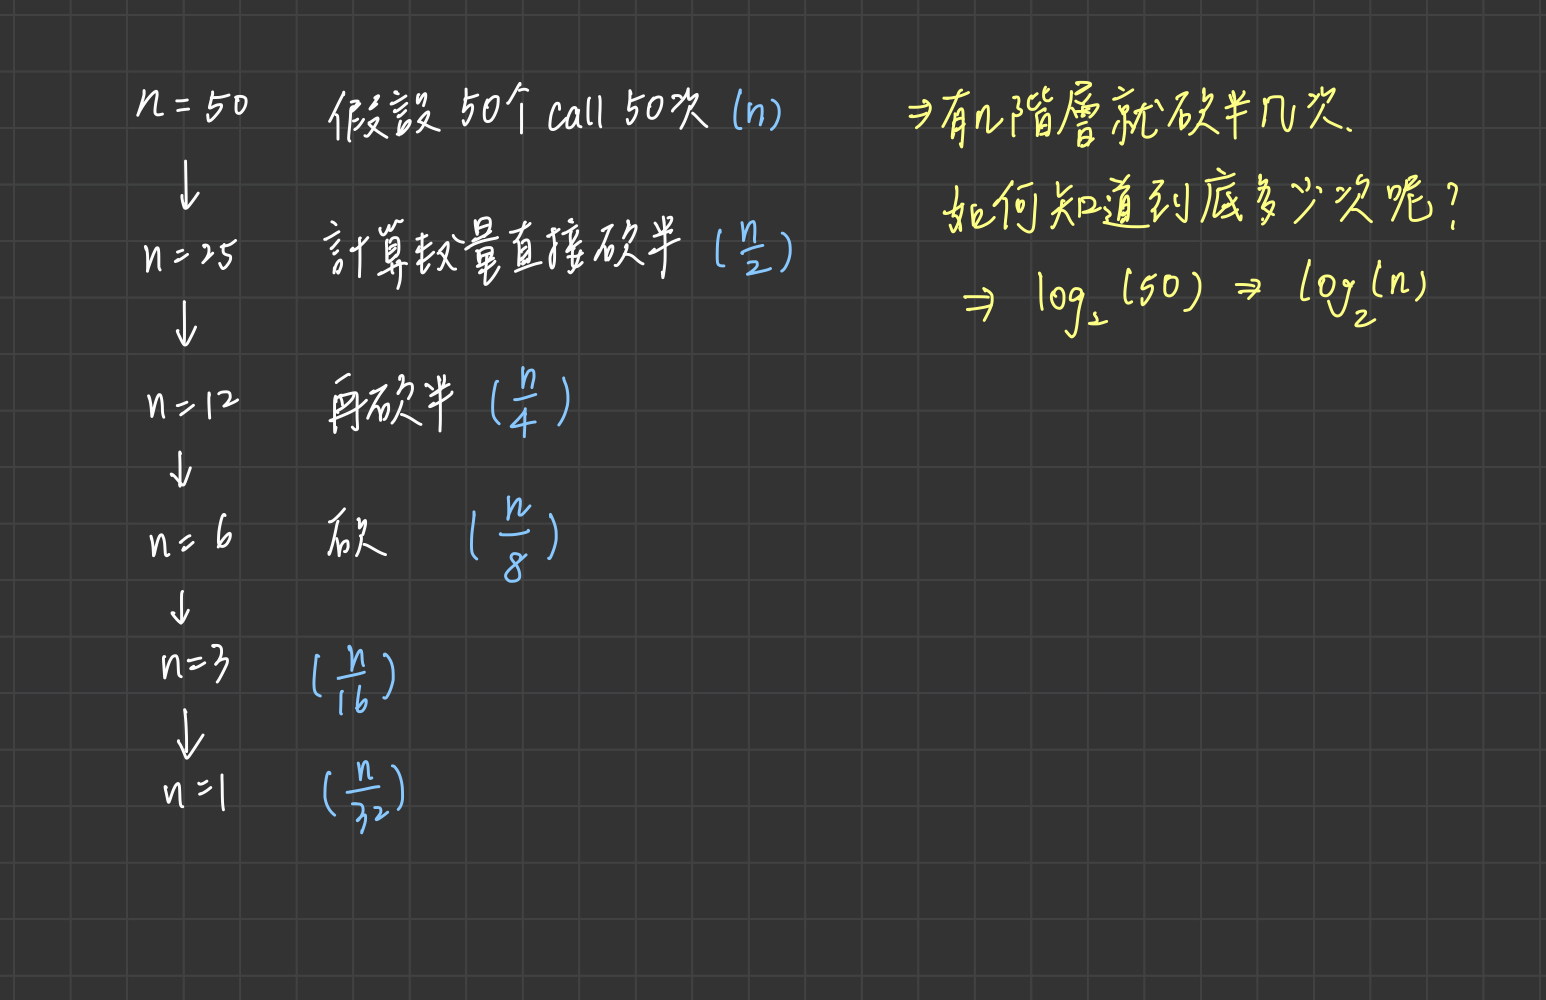 n = 50 假設 50个 call 50次 (n)
↓
n = 25 計算數量直接砍半 (n/2)
↓
n = 12 再砍半 (n/4)
↓
n = 6 砍 (n/8)
↓
n = 3 (n/16)
↓
n = 1 (n/32)
⇒ 有几階層就砍半几次.
如何知道到底多少次呢?
⇒ log₂(50) ⇒ log₂(n)